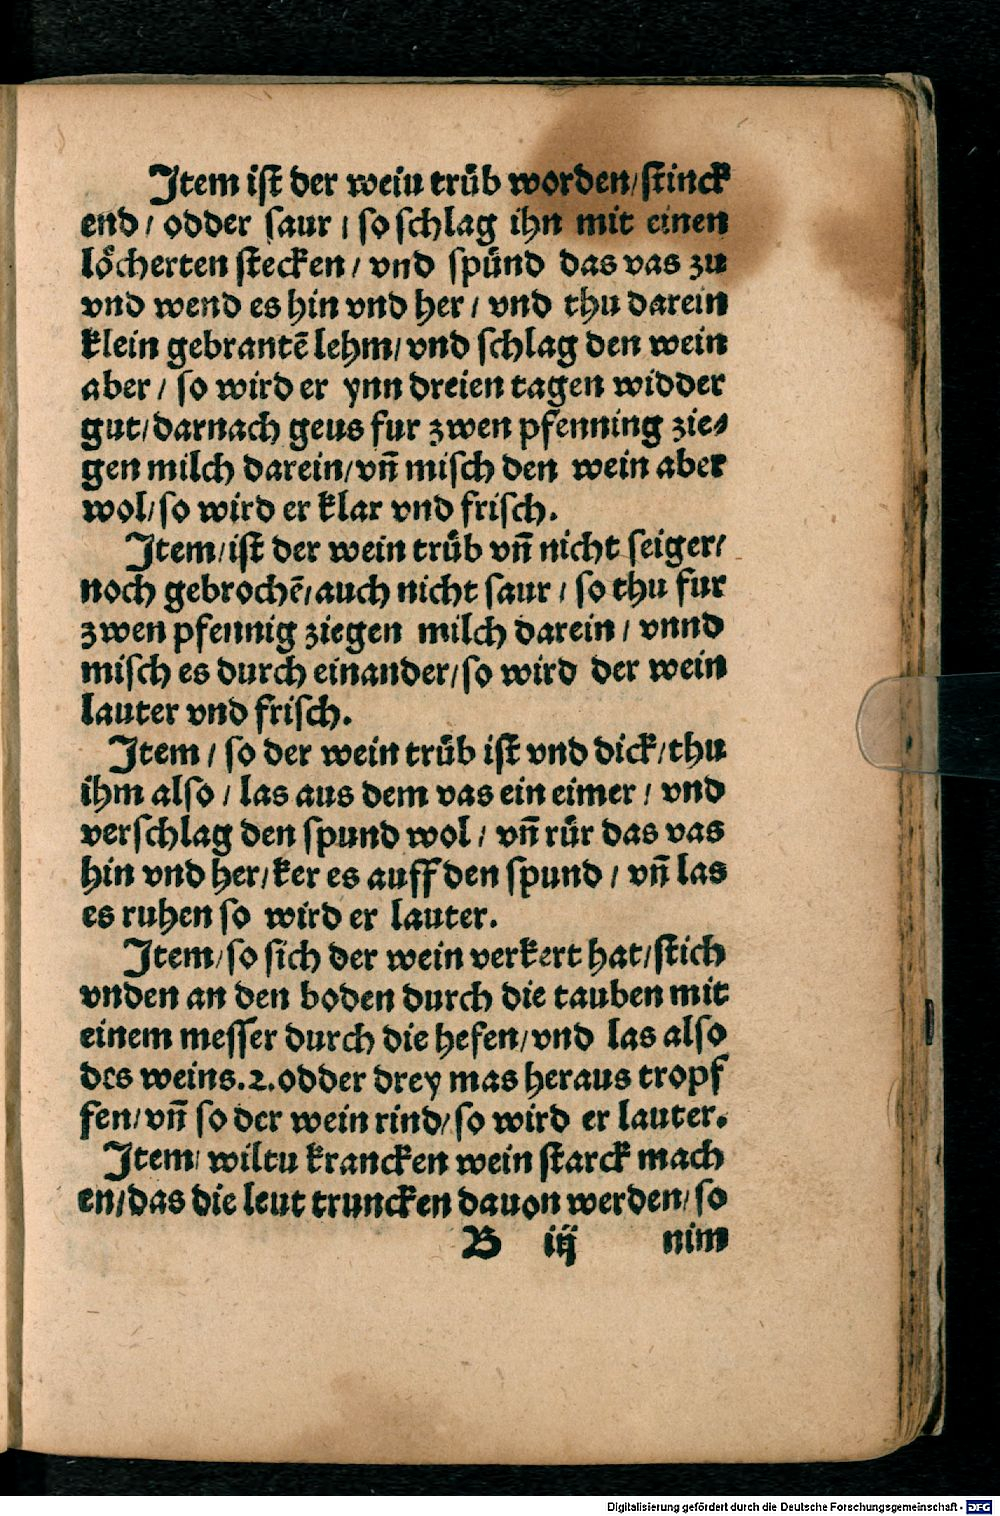 Item ist der weiu trüb worden/stinck
end/ odder saur / so schlag ihn mit einen
löcherten stecken/ vnd spünd das vas zu
vnd wend es hin vnd her/ vnd thu darein
klein gebrantē lehm/vnd schlag den wein
aber/ so wird er ynn dreien tagen widder
gut/darnach geus fur zwen pfenning zie⸗
gen milch darein/vn̄ misch den wein aber
wol/so wird er klar vnd frisch.
Item/ist der wein trüb vn̄ nicht seiger/
noch gebrochē/auch nicht saur / so thu fur
zwen pfennig ziegen milch darein/ vnnd
misch es durch einander/so wird der wein
lauter vnd frisch.
Item / so der wein trüb ist vnd dick/thu
ihm also / las aus dem vas ein eimer / vnd
verschlag den spund wol / vn̄ rür das vas
hin vnd her/ker es auff den spund / vn̄ las
es ruhen so wird er lauter.
Item/so sich der wein verkert hat/stich
vnden an den boden durch die tauben mit
einem messer durch die hefen/vnd las also
des weins.2.odder drey mas heraus tropf
fen/vn̄ so der wein rind/so wird er lauter.
Item/ wiltu krancken wein starck mach
en/das die leut truncken dauon werden/so
B iij nim
Digitalisierung gefördert durch die Deutsche Forschungsgemeinschaft - DFG